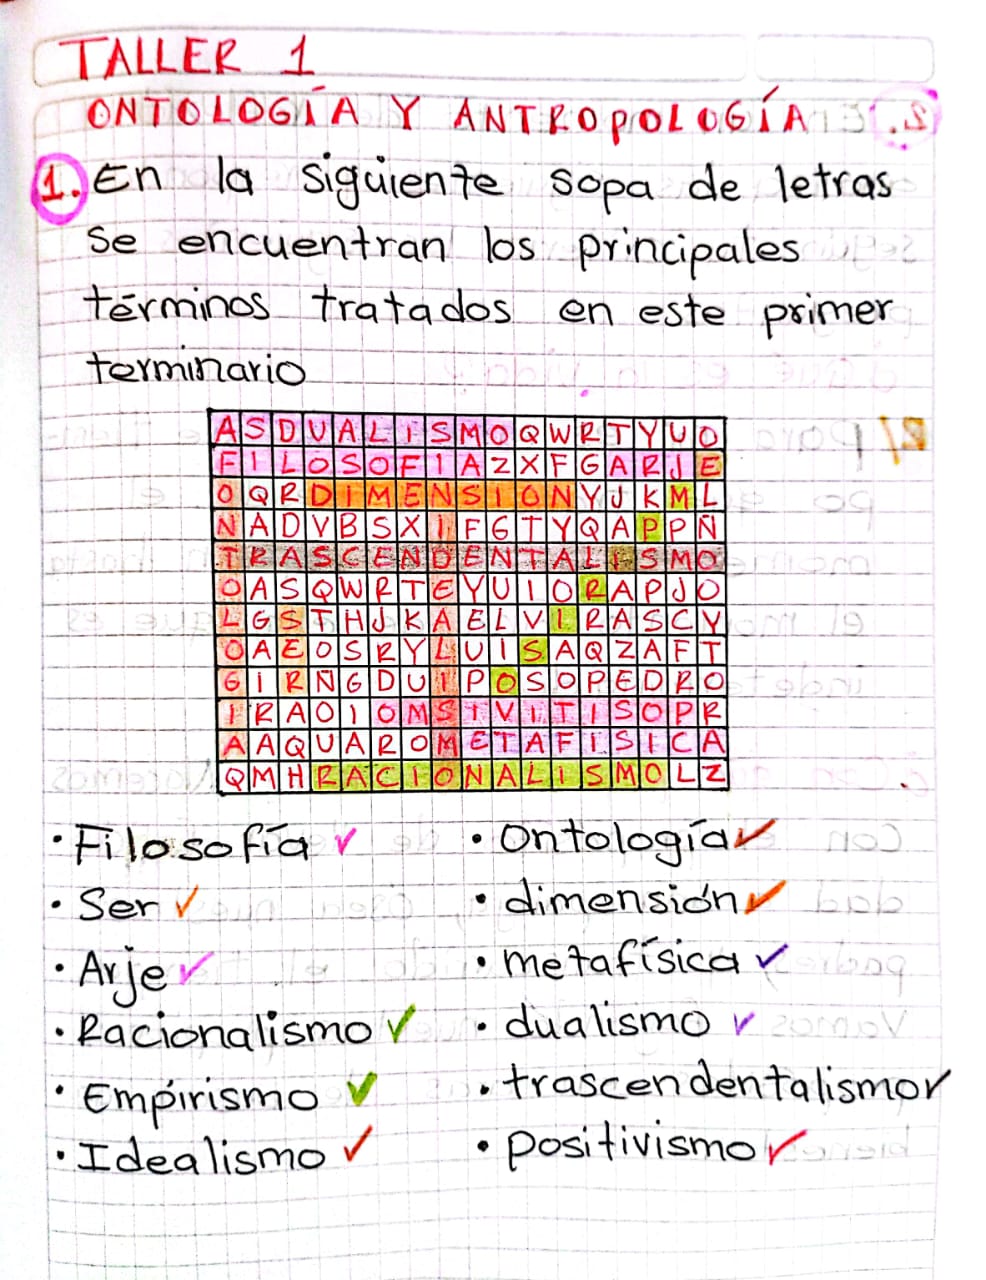 TALLER 1
ONTOLOGÍA Y ANTROPOLOGÍA
1. En la siguiente sopa de letras
se encuentran los principales
términos tratados en este primer
terminario
A S D U A L I S M O Q W R T Y U O
F I L O S O F I A Z X F G A R J E
O Q R D I M E N S I O N Y J K M L
N A D V B S X I F G T Y Q A P P Ñ
T R A S C E N D E N T A L I S M O
O A S Q W R T E Y U I O R A P J O
L G S T H J K A E L V I R A S C Y
O A E O S R Y L U I S A Q Z A F T
G I R Ñ G D U I P O S O P E D R O
I R A O I O M S I V I T I S O P R
A A Q U A R O M E T A F I S I C A
Q M H R A C I O N A L I S M O L Z
• Filosofía ✓ • Ontología ✓
• Ser ✓ • dimensión ✓
• Arje ✓ • metafísica ✓
• Racionalismo ✓ • dualismo ✓
• Empírismo ✓ • trascendentalismo ✓
• Idealismo ✓ • positivismo ✓